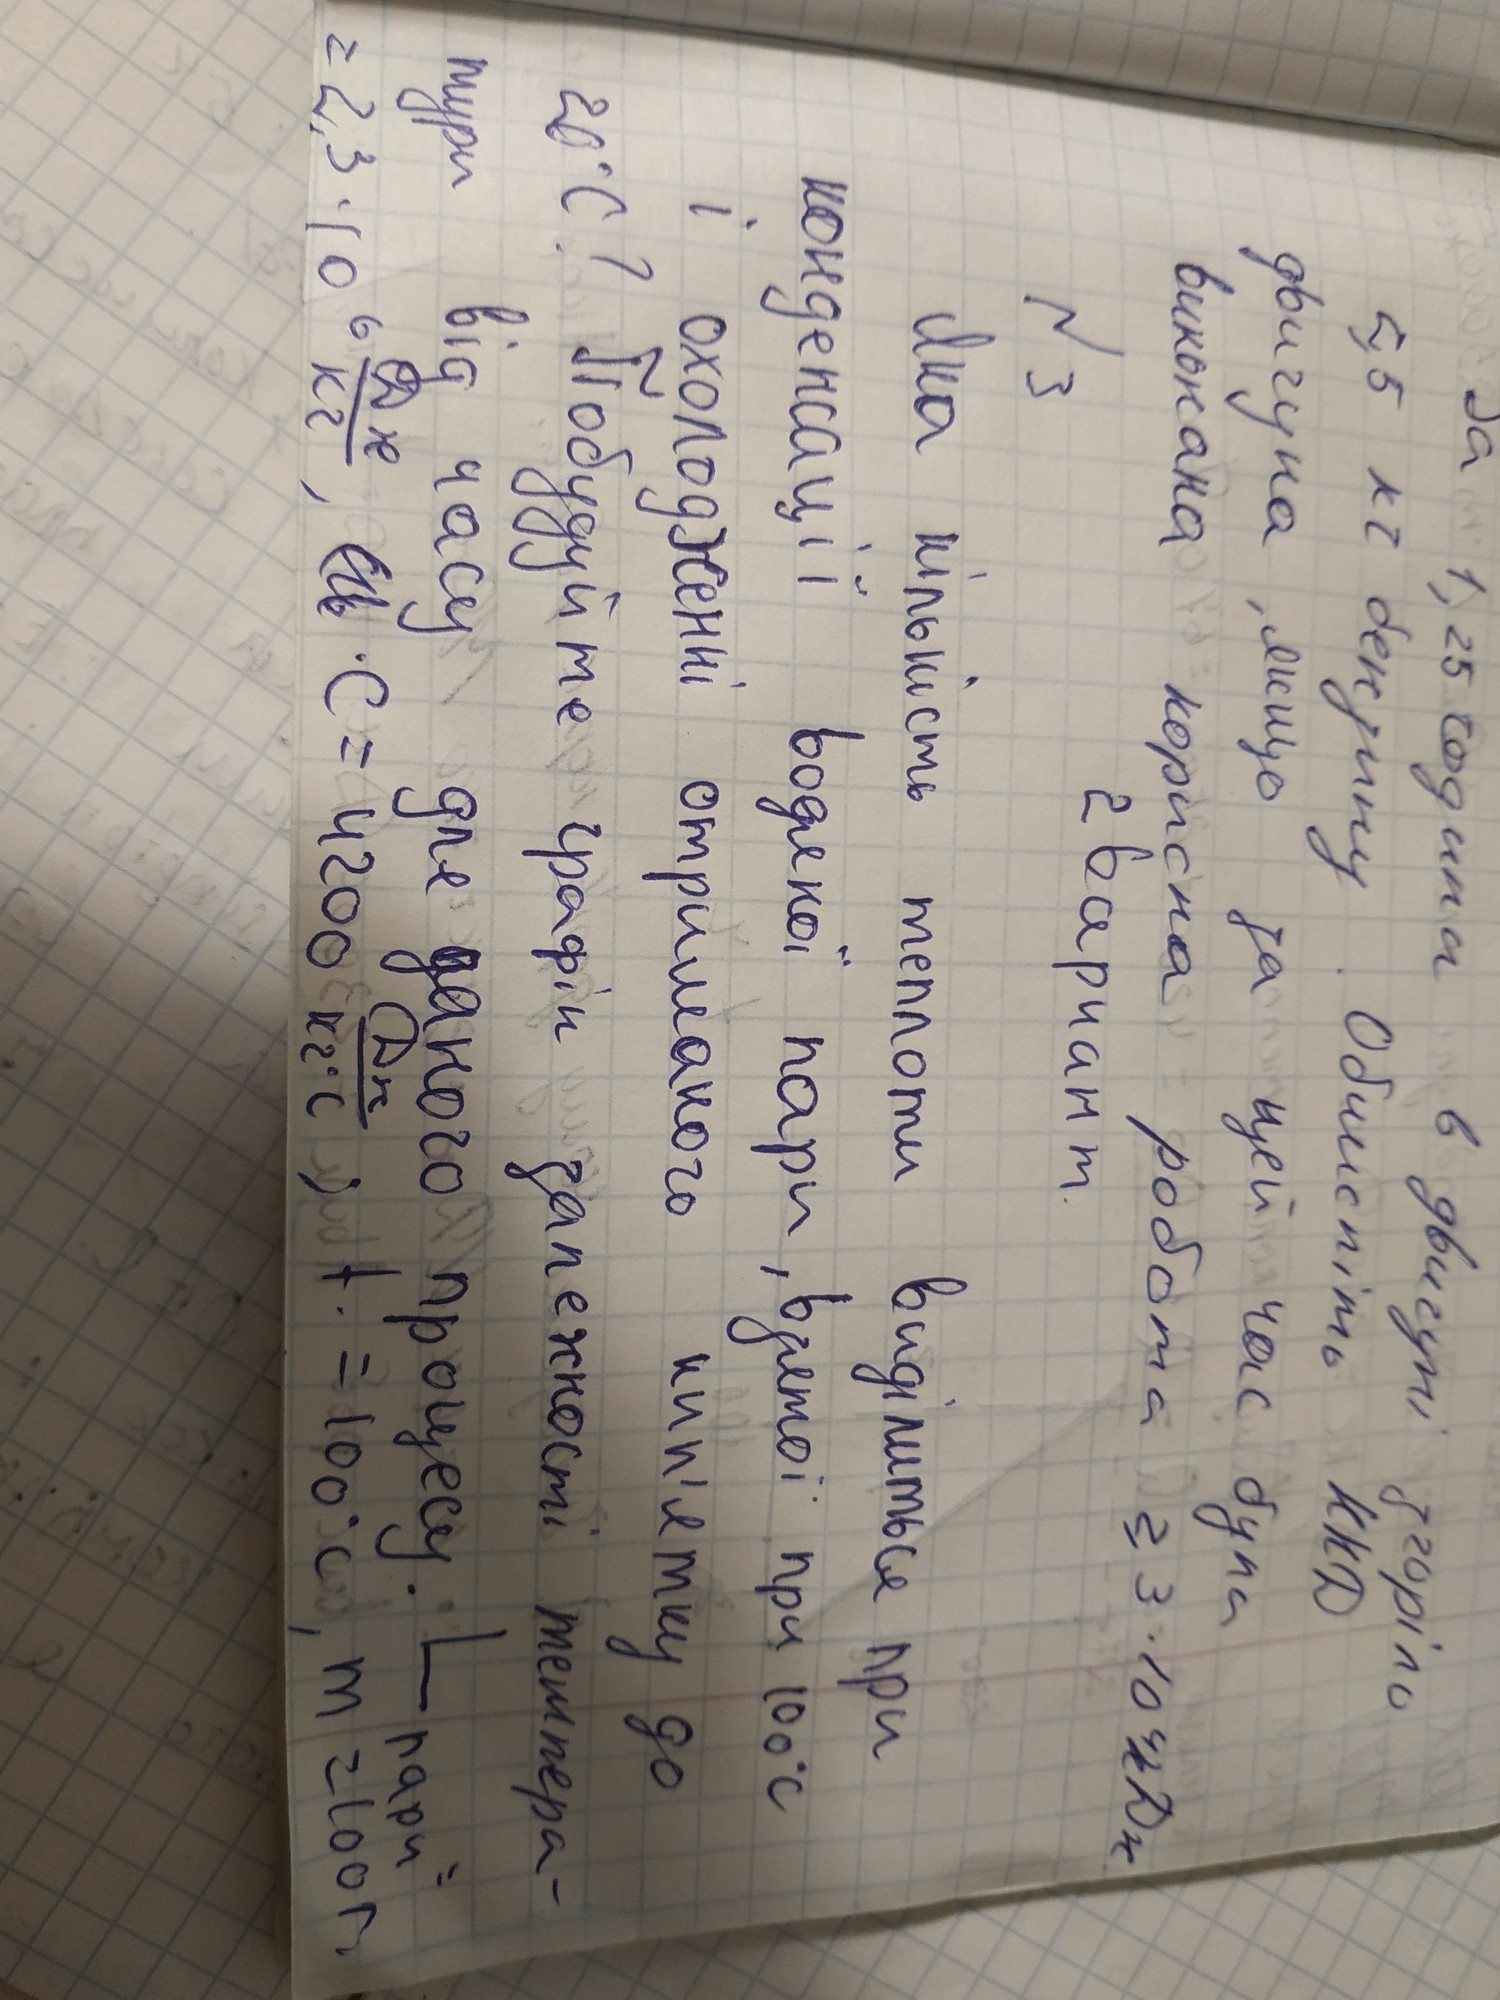 За 1,25 години в двигуні згоріло
5,5 кг бензину. Обчисліть ККД
двигуна, якщо за цей час була
виконана корисна робота ≥ 3·10⁴ кДж
N 3 2 варіант.
Яка кількість теплоти виділиться при
конденсації водяної пари, взятої при 100°С
і охолодженні отриманого кип'ятку до
20°С? Побудуйте графік залежності темпера-
тури від часу для даного процесу. L пари =
= 2,3·10⁶ Дж/кг, С = 4200 Дж/кг·°С, t = 100°С, m = 100г.